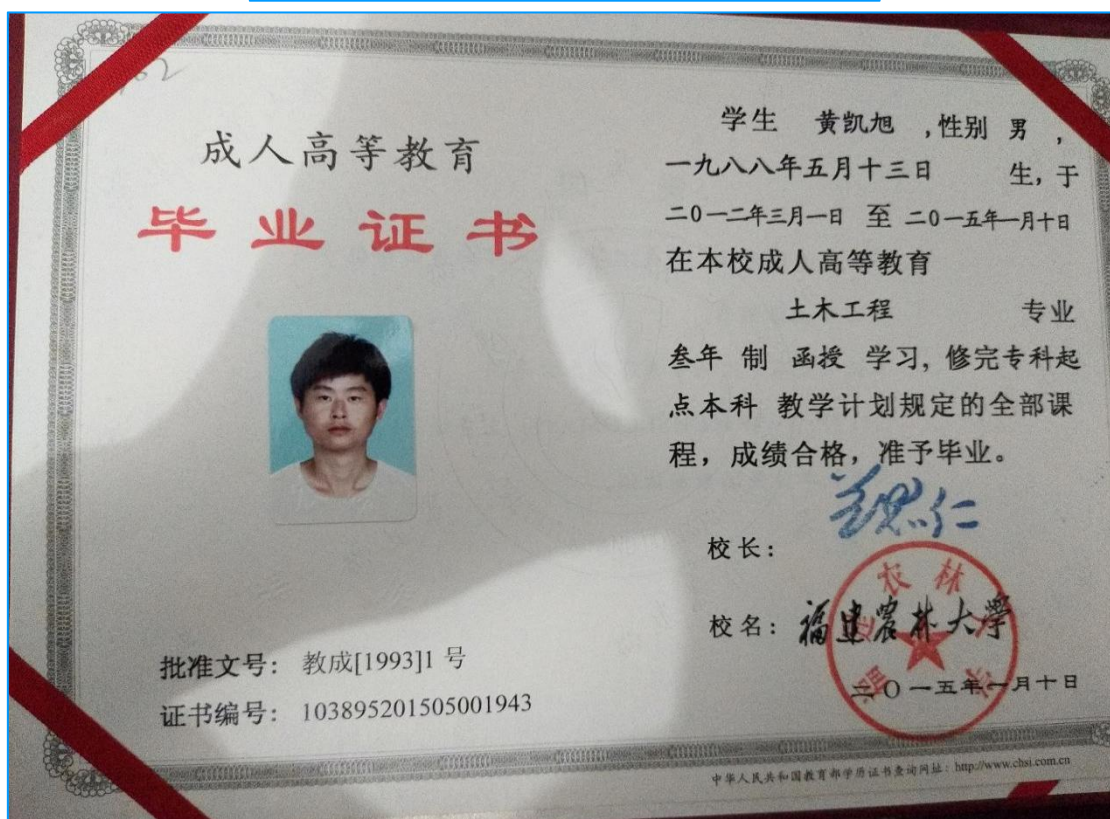 成人高等教育
毕业证书
批准文号： 教成[1993]1 号
证书编号： 103895201505001943
学生 黄凯旭 ,性别 男 ,
一九八八年五月十三日 生, 于
二0一二年三月一日 至 二0一五年一月十日
在本校成人高等教育
土木工程 专业
叁年 制 函授 学习, 修完专科起
点本科 教学计划规定的全部课
程，成绩合格，准予毕业。
校长：
校名： 福建农林大学
二〇一五年一月十日
中华人民共和国教育部学历证书查询网址：http://www.chsi.com.cn